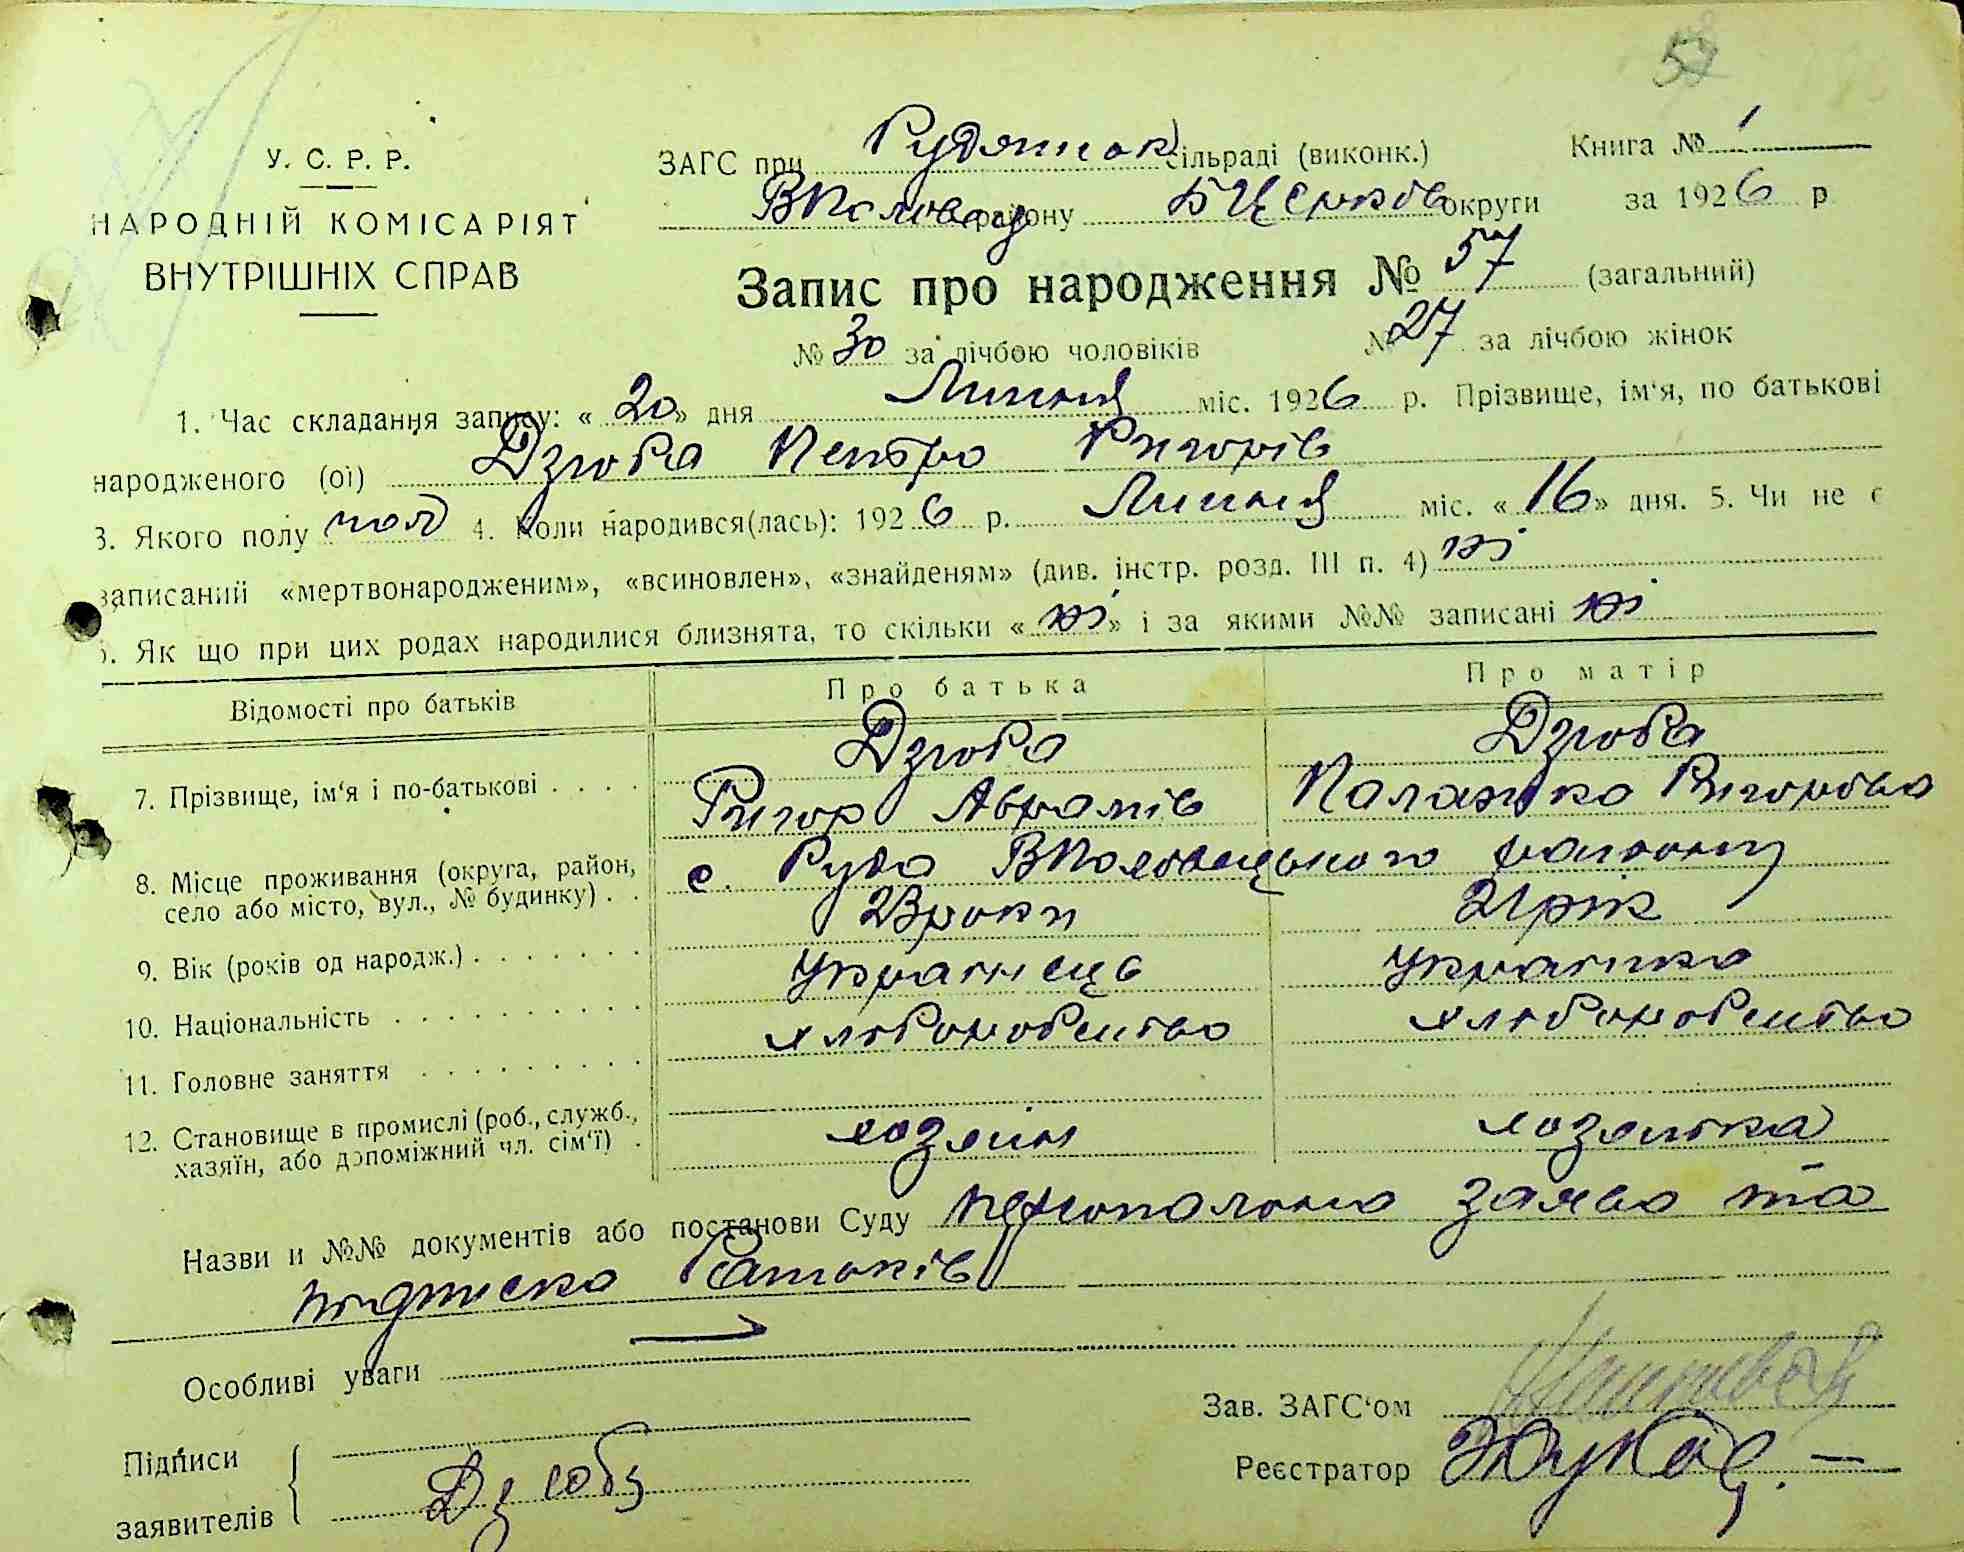 57
У. С. Р. Р.
НАРОДНІЙ КОМІСАРІЯТ
ВНУТРІШНІХ СПРАВ
ЗАГС при Рудянськ сільраді (виконк.) Книга № 1
ВПоловец району БЦерков округи за 1926 р
Запис про народження № 57 (загальний)
№ 30 за лічбою чоловіків № 27 за лічбою жінок
1. Час складання запису: « 20 » дня Липня міс. 1926 р. Прізвище, ім'я, по батькові
народженого (ої) Дзюба Петро Григорів
3. Якого полу чол 4. Коли народився(лась): 1926 р. Липня міс. « 16 » дня. 5. Чи не є
записаний «мертвонародженим», «всиновлен», «знайденям» (див. інстр. розд. III п. 4) ні
6. Як що при цих родах народилися близнята, то скільки « ні » і за якими №№ записані ні
Відомості про батьків Про батька Про матір
7. Прізвище, ім'я і по-батькові Дзюба Дзюба
Григор Аврамів Палажка Григорівна
8. Місце проживання (округа, район, село або місто, вул., № будинку) с. Руда ВПоловецького району
9. Вік (років од народж.) 23 роки 21 рік
10. Національність Українець Українка
11. Головне заняття хліборобство хліборобство
12. Становище в промислі (роб., служб., хазяїн, або допоміжний чл. сім'ї) хозяін хозяйка
Назви и №№ документів або постанови Суду заява та
підписка батьків
Особливі уваги
Зав. ЗАГС'ом
Підписи
заявителів Дзюба
Реєстратор